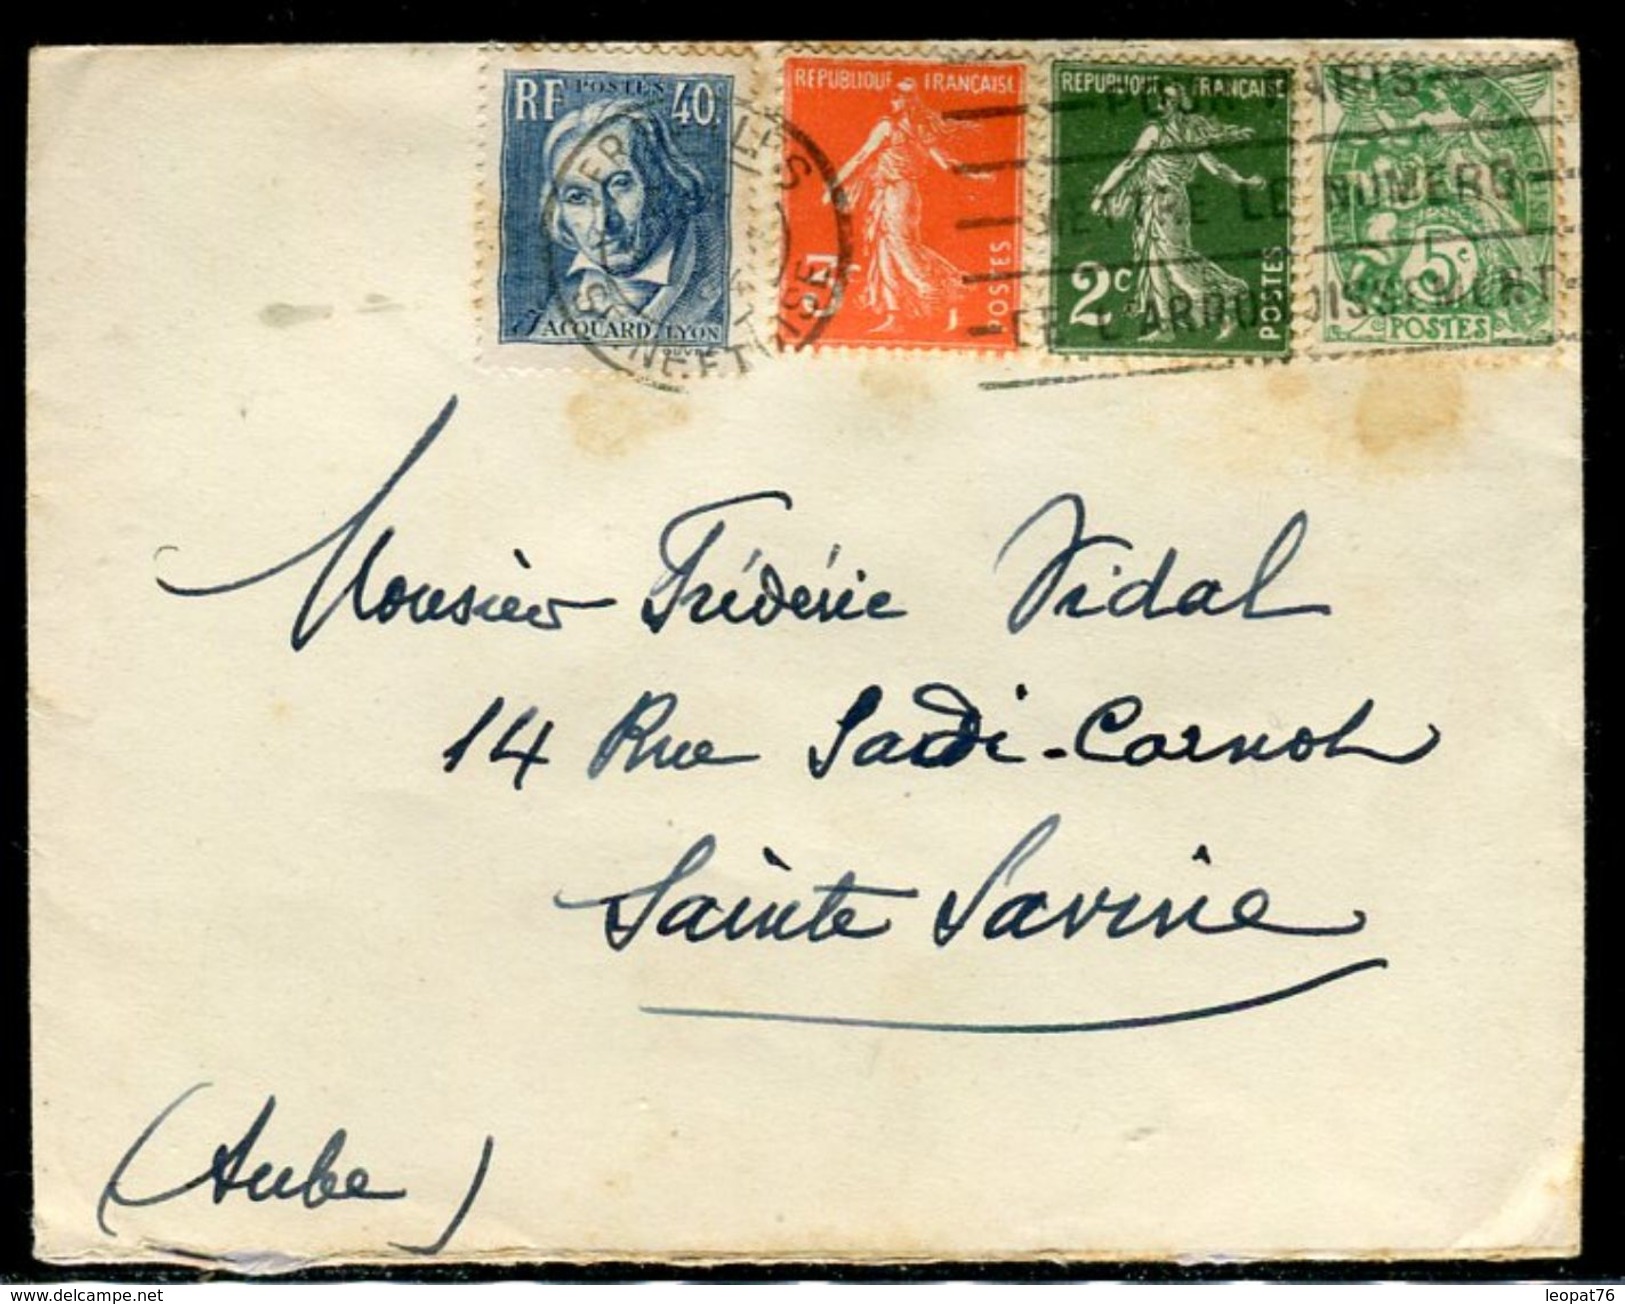 RF POSTES 40c.
JACQUARD LYON
REPUBLIQUE FRANÇAISE
POSTES
REPUBLIQUE FRANÇAISE
2c POSTES
5c
POSTES
VERSAILLES
SEINE-ET-OISE
POUR PARIS
LE NUMERO
DE L'ARRONDISSEMENT
Monsieur Frédéric Vidal
14 Rue Sadi-Carnot
Sainte Savine
(Aube)
www.delcampe.net
leopat76